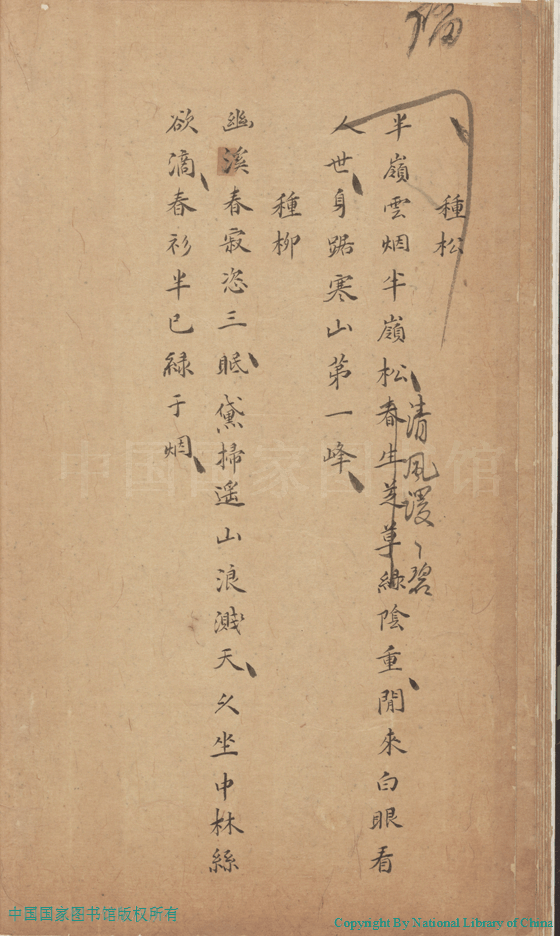 種松
清風謖〻碧
半嶺雲烟半嶺松春生芝草綠陰重閒來白眼看
人世身踞寒山第一峰
種柳
幽溪春寂恣三眠黛掃遥山浪濺天久坐中林絲
欲滴春衫半已綠于烟
中国国家图书馆
中国国家图书馆版权所有
Copyright By National Library of China